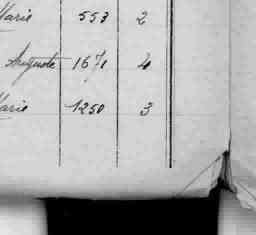 Marie 553 2
Auguste 1671 4
Marie 1250 3